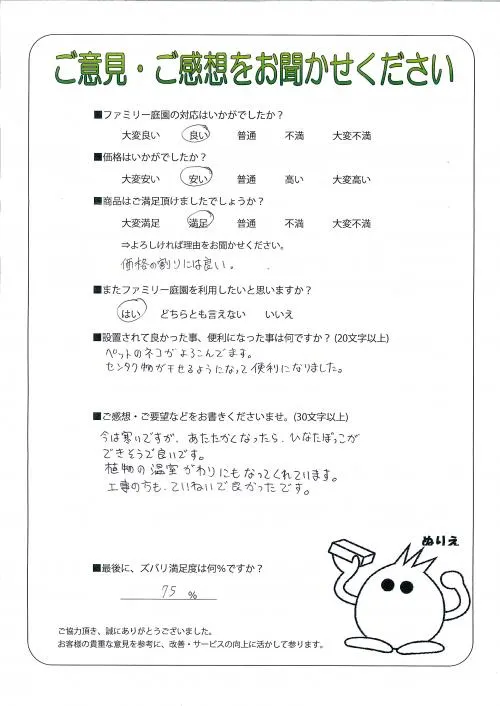 ご意見・ご感想をお聞かせください
■ファミリー庭園の対応はいかがでしたか？
大変良い 良い 普通 不満 大変不満
■価格はいかがでしたか？
大変安い 安い 普通 高い 大変高い
■商品はご満足頂けましたでしょうか？
大変満足 満足 普通 不満 大変不満
⇒よろしければ理由をお聞かせください。
価格の割りには良い。
■またファミリー庭園を利用したいと思いますか？
はい どちらとも言えない いいえ
■設置されて良かった事、便利になった事は何ですか？(20文字以上)
ペットのネコがよろこんでます。
センタク物が干せるようになって便利になりました。
■ご感想・ご要望などをお書きくださいませ。(30文字以上)
今は寒いですが、あたたかくなったら、ひなたぼっこが
できそうで良いです。
植物の温室がわりにもなってくれています。
工事の方も、ていねいで良かったです。
ぬりえ
■最後に、ズバリ満足度は何％ですか？
75 %
ご協力頂き、誠にありがとうございました。
お客様の貴重な意見を参考に、改善・サービスの向上に活かして参ります。